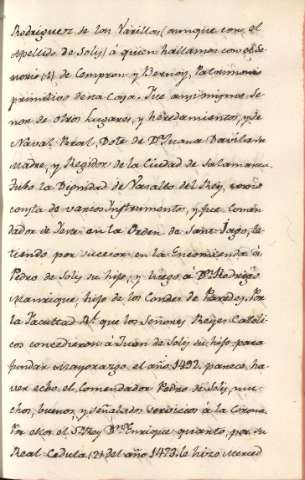 Rodriguez de los Varillas (aunque con el
Apellido de Solis) á quien hallamos con el Se-
norio (1) de Compron, y Bernoy, Patrimonio
primitivo de esta Casa. Fue assimismo Se-
nor de otros Lugares, y heredamientos, y de
Naval Peral, Dote de D.ª Juana Davila su
Madre, y Regidor de la Ciudad de Salamanca.
Tubo la Dignidad de Vasallo del Rey, como
consta de varios Instrumentos, y fue Comen-
dador de en la Orden de Sant-Iago, te-
niendo por sucesor en la Encomienda á
Pedro de Solis su hijo, y luego á D.n Rodrigo
Manrique, hijo de los Condes de Paredes. Por
la Facultad R.l que los Señores Reyes Catoli-
cos concedieron á Juan de Solis su hijo para
fundar mayorazgo el año 1492. parece, ha-
ver echo el Comendador Pedro de Solis, mu-
chos, buenos, y señalados servicios á la Corona.
Por ellos el S.r Rey D.n Enrique quarto, por su
Real Cedula (2) del año 1473. le hizo Merced